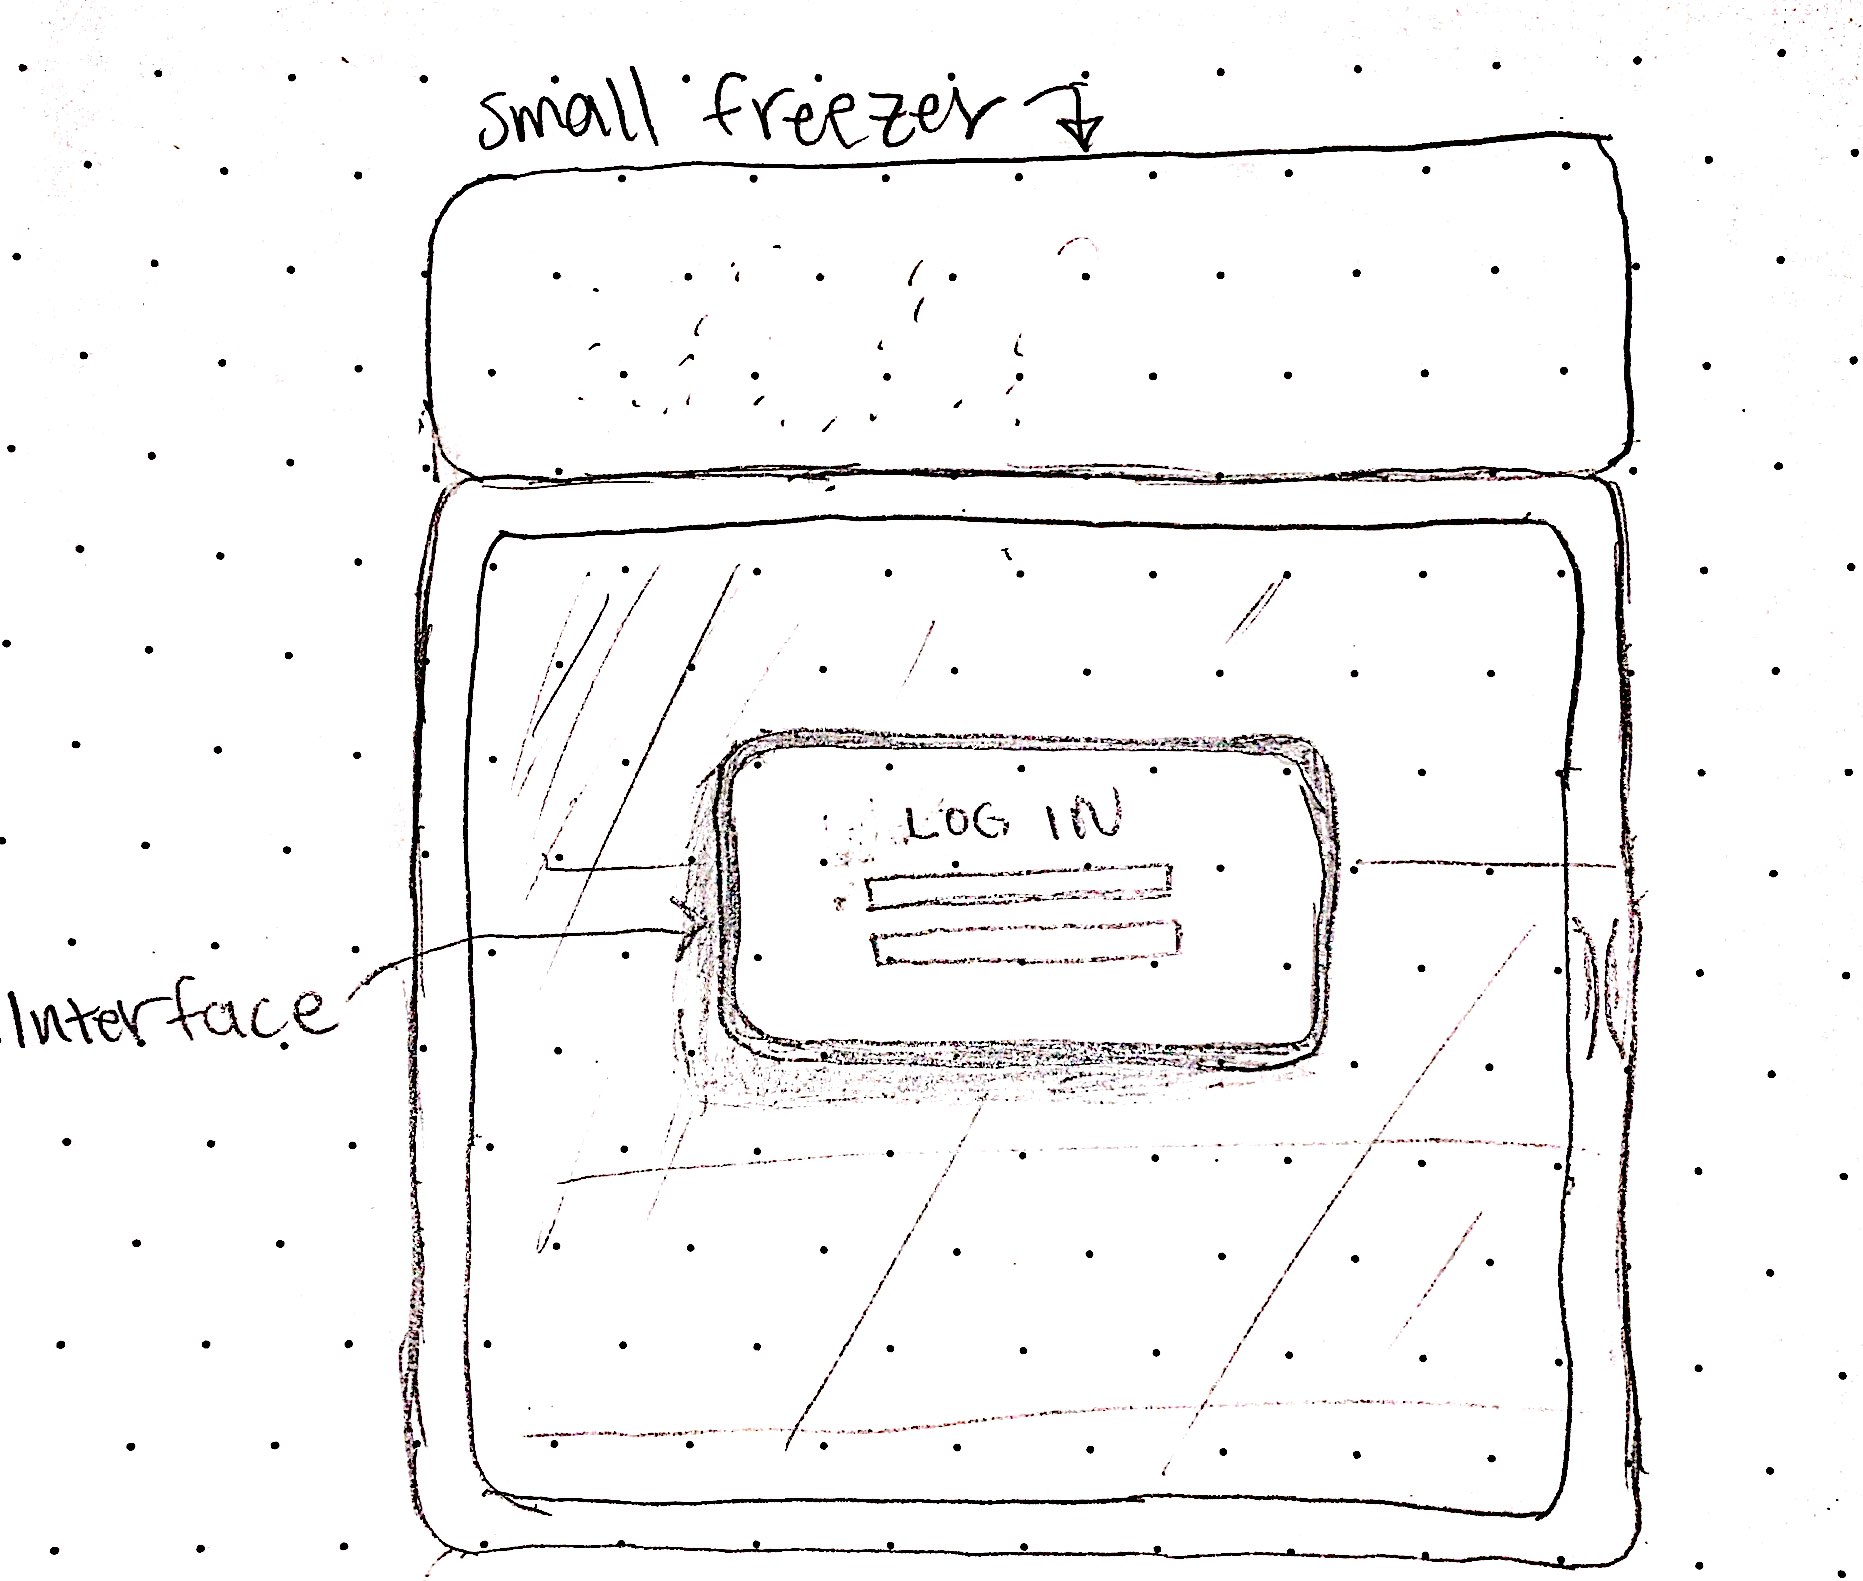 small freezer
LOG IN
Interface